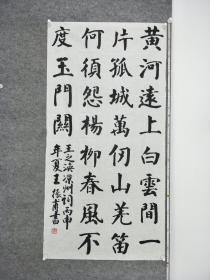 黃河遠上白雲間一
片孤城萬仞山羌笛
何須怨楊柳春風不
度玉門關
王之渙凉州詞丙申
年夏王